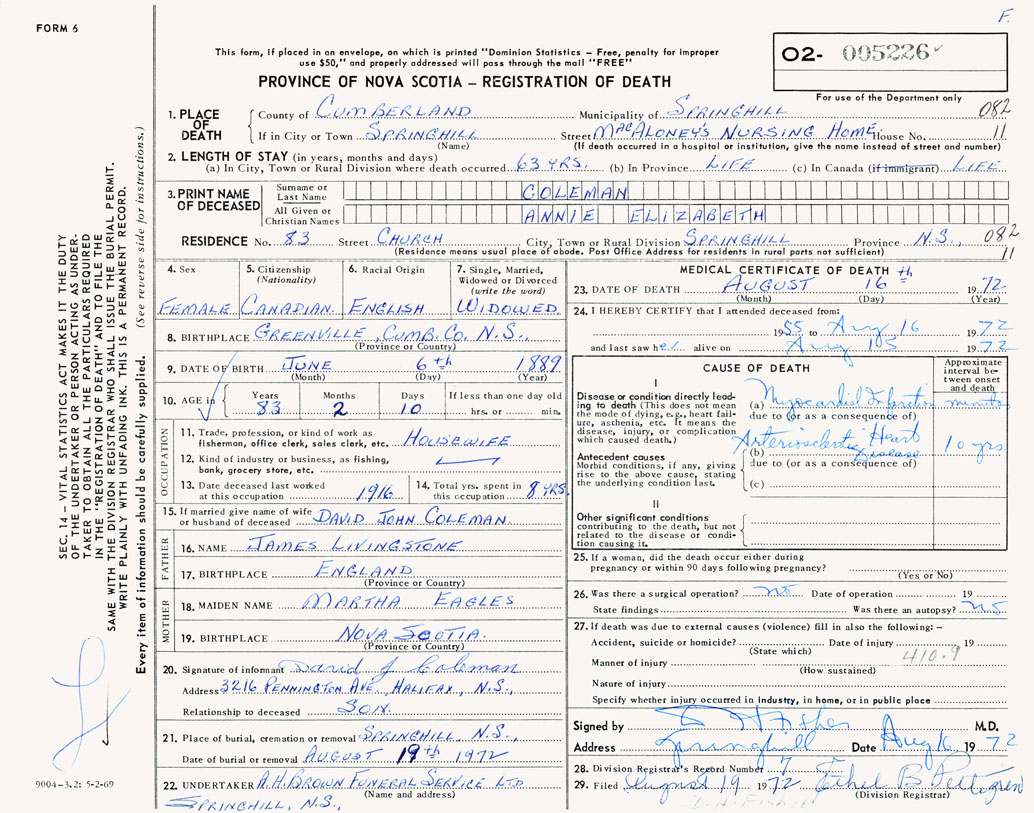 F.
FORM 6
This form, if placed in an envelope, on which is printed "Dominion Statistics – Free, penalty for improper
use $50," and properly addressed will pass through the mail "FREE"
PROVINCE OF NOVA SCOTIA – REGISTRATION OF DEATH
O2- 005226
For use of the Department only
1. PLACE OF DEATH
County of CUMBERLAND Municipality of SPRINGHILL 082
If in City or Town SPRINGHILL Street MACALONEY'S NURSING HOME House No. 11
(Name) (If death occurred in a hospital or institution, give the name instead of street and number)
2. LENGTH OF STAY (in years, months and days)
(a) In City, Town or Rural Division where death occurred 63 YRS. (b) In Province LIFE (c) In Canada (if immigrant) LIFE
3. PRINT NAME OF DECEASED
Surname or Last Name COLEMAN
All Given or Christian Names ANNIE ELIZABETH
RESIDENCE No. 83 Street CHURCH City, Town or Rural Division SPRINGHILL Province N.S., 082
(Residence means usual place of abode. Post Office Address for residents in rural parts not sufficient) 11
4. Sex
FEMALE
5. Citizenship
(Nationality)
CANADIAN
6. Racial Origin
ENGLISH
7. Single, Married,
Widowed or Divorced
(write the word)
WIDOWED
8. BIRTHPLACE GREENVILLE, CUMB. CO. N.S.
(Province or Country)
9. DATE OF BIRTH JUNE 6th 1889
(Month) (Day) (Year)
10. AGE in
Years Months Days If less than one day old
83 2 10 hrs. or min.
OCCUPATION
11. Trade, profession, or kind of work as
fishermon, office clerk, sales clerk, etc. HOUSEWIFE
12. Kind of industry or business, as fishing,
bank, grocery store, etc.
13. Date deceased last worked
at this occupation 1916
14. Total yrs. spent in
this occupation 8 YRS.
15. If married give name of wife
or husband of deceased DAVID JOHN COLEMAN
FATHER
16. NAME JAMES LIVINGSTONE
17. BIRTHPLACE ENGLAND
(Province or Country)
MOTHER
18. MAIDEN NAME MARTHA EAGLES
19. BIRTHPLACE NOVA SCOTIA.
(Province or Country)
20. Signature of informant David J Coleman
Address 3216 PENNINGTON AVE., HALIFAX, N.S.,
Relationship to deceased SON.
21. Place of burial, cremation or removal SPRINGHILL N.S.,
Date of burial or removal AUGUST 19th 1972
22. UNDERTAKER A.H. BROWN FUNERAL SERVICE LTD
(Name and address)
SPRINGHILL, N.S.,
MEDICAL CERTIFICATE OF DEATH
23. DATE OF DEATH AUGUST 16th 1972
(Month) (Day) (Year)
24. I HEREBY CERTIFY that I attended deceased from:
1955 to Aug 16 1972
and last saw her alive on Aug 15 1972
CAUSE OF DEATH
Approximate
interval be-
tween onset
and death
I
Disease or condition directly lead-
ing to death (This does not mean
the mode of dying, e.g., heart fail-
ure, asthenia, etc. It means the
disease, injury, or complication
which caused death.)
(a) Myocardial Infarction minutes
due to (or as a consequence of)
Arteriosclerotic Heart
(b) Disease 10 yrs.
due to (or as a consequence of)
Antecedent causes
Morbid conditions, if any, giving
rise to the above cause, stating
the underlying condition last.
(c)
II
Other significant conditions
contributing to the death, but not
related to the disease or condi-
tion causing it.
25. If a woman, did the death occur either during
pregnancy or within 90 days following pregnancy?
(Yes or No)
26. Was there a surgical operation? no Date of operation 19
State findings Was there an autopsy? no
27. If death was due to external causes (violence) fill in also the following: –
Accident, suicide or homicide? Date of injury 19
(State which) 410.9
Manner of injury
(How sustained)
Nature of injury
Specify whether injury occurred in industry, in home, or in public place
Signed by D H Fisher M.D.
Address Springhill Date Aug 16 1972
28. Division Registrar's Record Number 7
29. Filed August 19 1972 Ethel B Pettigrew
(Division Registrar)
D. H. FISHER
SEC. 14 – VITAL STATISTICS ACT MAKES IT THE DUTY
OF THE UNDERTAKER OR PERSON ACTING AS UNDER-
TAKER TO OBTAIN ALL THE PARTICULARS REQUIRED
IN THE "REGISTRATION OF DEATH" AND TO FILE THE
SAME WITH THE DIVISION REGISTRAR WHO SHALL ISSUE THE BURIAL PERMIT.
WRITE PLAINLY WITH UNFADING INK. THIS IS A PERMANENT RECORD.
Every item of information should be carefully supplied. (See reverse side for instructions.)
9004-3.2: 5-2-69